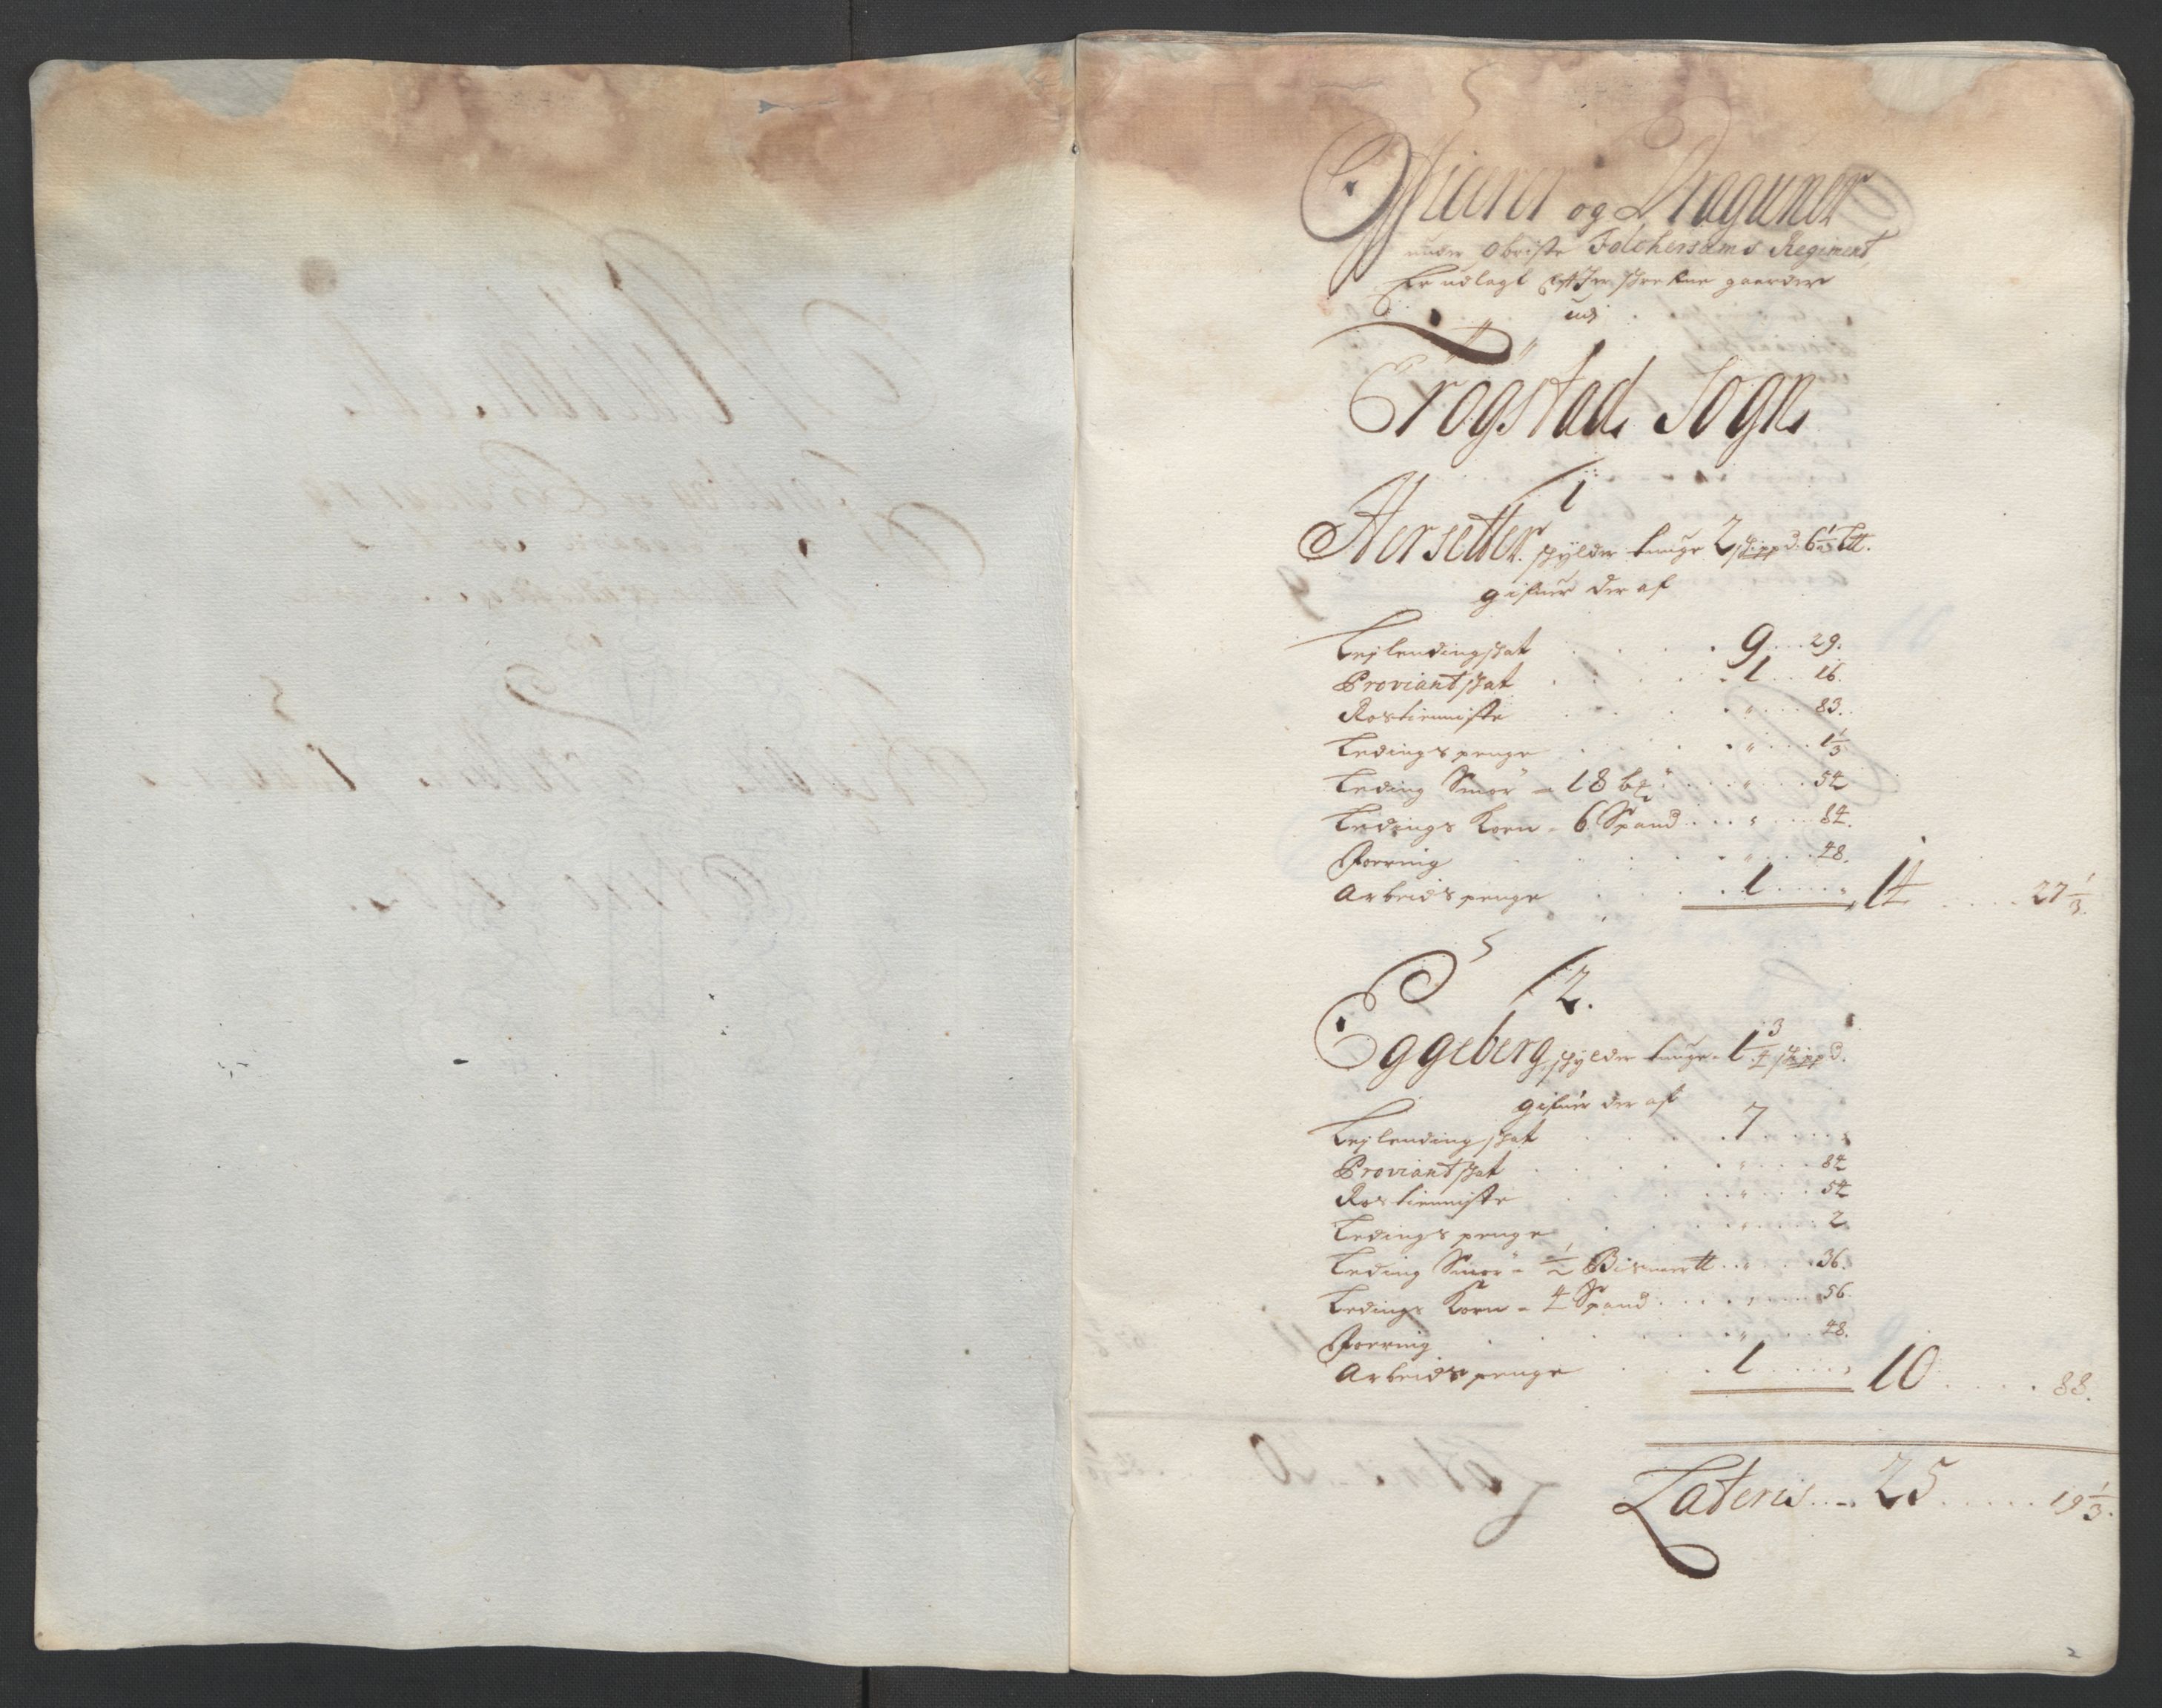 Officerer og Draguner
under Obriste Folchersams Regiment,
Er udlagt Efftersckrefne gaarder
udj
Trøgstad Sogn
1
Hersetter. schylder tunge 2 schippd. 6½ L℔.
gifuer der af
Leylendingschat . . . . . 9 . . . 29.
Proviantschat . . . . . 1 . . 16.
Rostienniste . . . . „ . . . 83.
Ledings penge . . . . „ . . . 1⅓
Leding Smør - 18 b℔ . . . „ . . . 54
Ledings Korn - 6 Spand . . . „ . . . 84.
Foering . . . . . „ . . . 48.
Arbeids penge . . . . 1 . . . „ 14 . . . . 27⅓.
2.
Eggeberg schylder tunge - 1¾ schippd.
gifuer der af
Leylendingschat . . . . . 7 . . . . „
Proviantschat . . . . . „ . . . 84
Rostienniste . . . . . „ . . . 54
Ledings penge . . . . „ . . . 2.
Leding Smør - ½ Bismer℔ . . „ . . . 36.
Ledings Korn - 4 Spand . . . . „ . . . 56.
Foering . . . . . „ . . . 48.
Arbeids penge . . . . 1 . . . „ 10 . . . . 88.
Lateris . . - 25 . . . . . 19⅓.
2